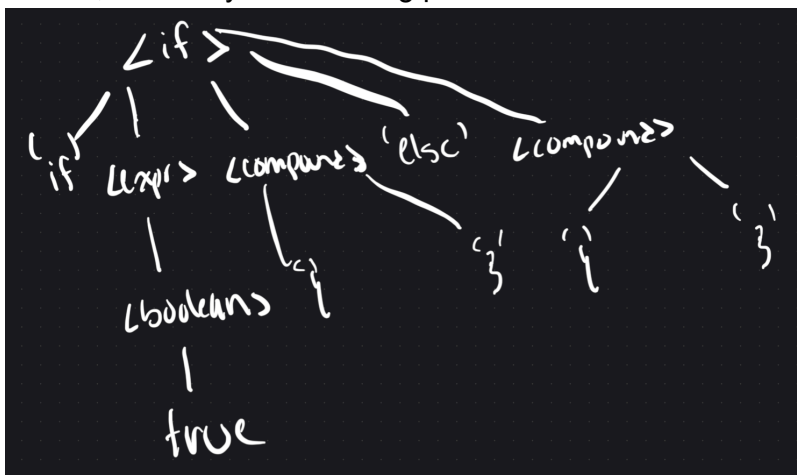 <if>
'if' <expr> <compound> 'else' <compound>
'{' '}' '{' '}'
<boolean>
true